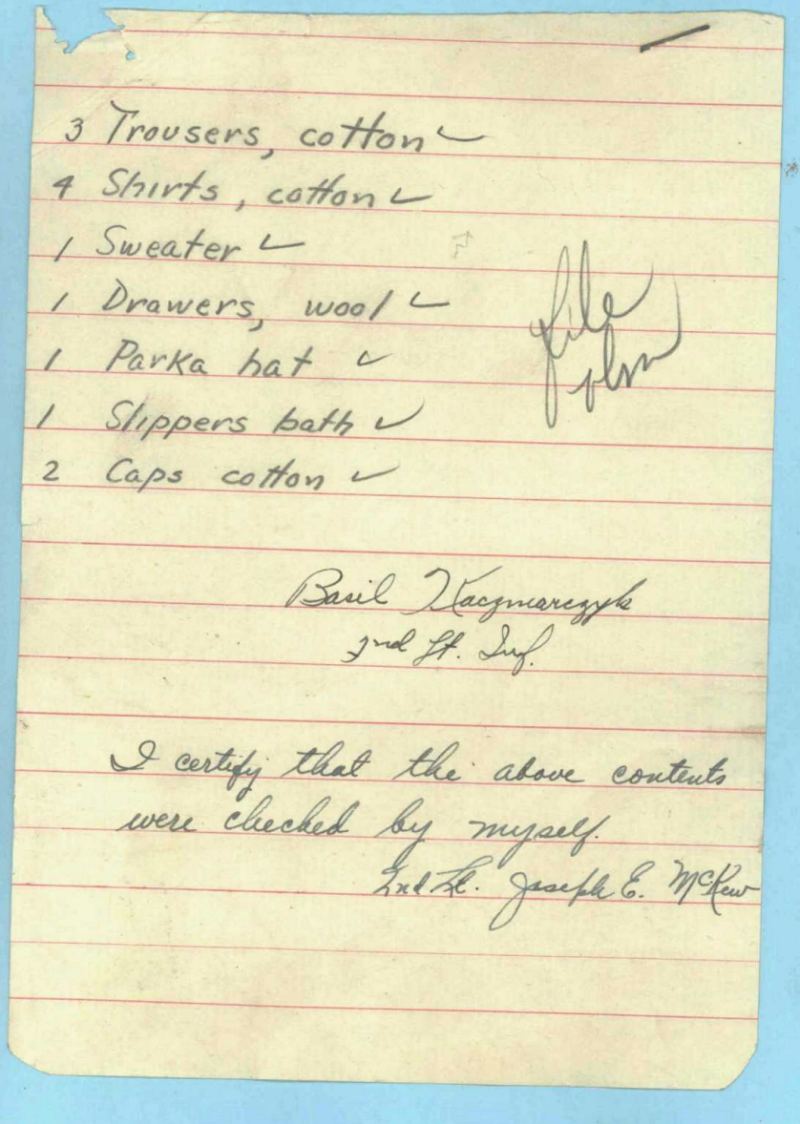 3 Trousers, cotton ✓
4 Shirts, cotton ✓
1 Sweater ✓
1 Drawers, wool ✓
1 Parka hat ✓
1 Slippers bath ✓
2 Caps cotton ✓
file
Basil Kaczmarczyk
2nd Lt. Inf.
I certify that the above contents
were checked by myself.
2nd Lt. Joseph E. McKew